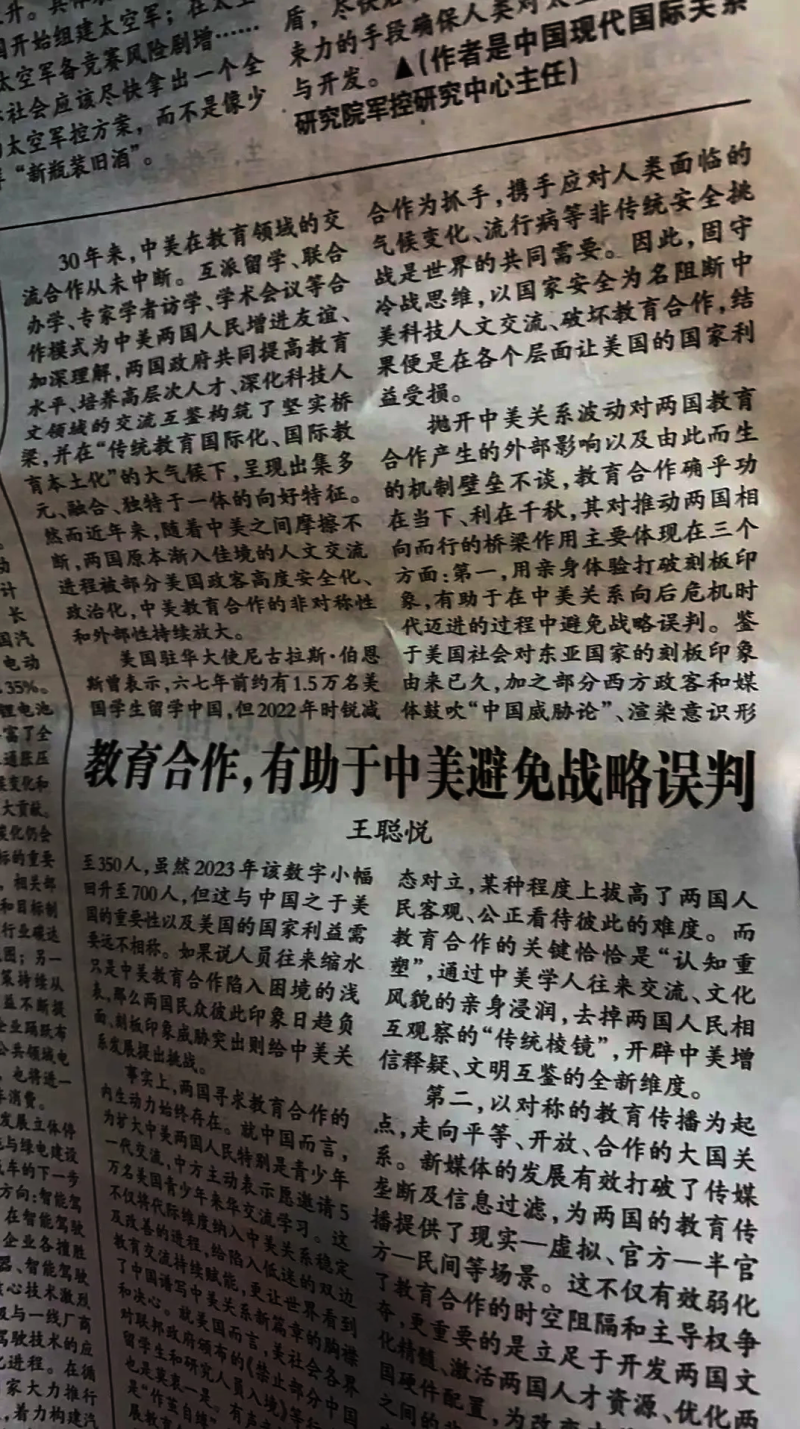 国开始组建太空军；在太
太空军备竞赛风险剧增……
社会应该尽快拿出一个全
太空军控方案，而不是像少
“新瓶装旧酒”。
盾，尽快
束力的手段确保人类对太
与开发。▲（作者是中国现代国际关系
研究院军控研究中心主任）
30年来，中美在教育领域的交
流合作从未中断。互派留学、联合
办学、专家学者访学、学术会议等合
作模式为中美两国人民增进友谊、
加深理解，两国政府共同提高教育
水平、培养高层次人才、深化科技人
文领域的交流互鉴构筑了坚实桥
梁，并在“传统教育国际化、国际教
育本土化”的大气候下，呈现出集多
元、融合、独特于一体的向好特征。
然而近年来，随着中美之间摩擦不
断，两国原本渐入佳境的人文交流
进程被部分美国政客高度安全化、
政治化，中美教育合作的非对称性
和外部性持续放大。
美国驻华大使尼古拉斯·伯恩
斯曾表示，六七年前约有1.5万名美
国学生留学中国，但2022年时锐减
合作为抓手，携手应对人类面临的
气候变化、流行病等非传统安全挑
战是世界的共同需要。因此，固守
冷战思维，以国家安全为名阻断中
美科技人文交流、破坏教育合作，结
果便是在各个层面让美国的国家利
益受损。
抛开中美关系波动对两国教育
合作产生的外部影响以及由此而生
的机制壁垒不谈，教育合作确乎功
在当下、利在千秋，其对推动两国相
向而行的桥梁作用主要体现在三个
方面：第一，用亲身体验打破刻板印
象，有助于在中美关系向后危机时
代迈进的过程中避免战略误判。鉴
于美国社会对东亚国家的刻板印象
由来已久，加之部分西方政客和媒
体鼓吹“中国威胁论”、渲染意识形
教育合作，有助于中美避免战略误判
王聪悦
至350人，虽然2023年该数字小幅
回升至700人，但这与中国之于美
国的重要性以及美国的国家利益需
要远不相称。如果说人员往来缩水
只是中美教育合作陷入困境的浅
表，那么两国民众彼此印象日趋负
面、刻板印象威胁突出则给中美关
系发展提出挑战。
事实上，两国寻求教育合作的
内生动力始终存在。就中国而言，
为扩大中美两国人民特别是青少年
一代交流，中方主动表示愿邀请5
万名美国青少年来华交流学习。这
不仅将代际维度纳入中美关系稳定
及改善的进程，给陷入低迷的双边
教育交流持续赋能，更让世界看到
了中国谱写中美关系新篇章的胸襟
和决心。就美国而言，美社会各界
对联邦政府颁布的《禁止部分中国
留学生和研究人员入境》等行
也是莫衷一是。有声
是“作茧自缚”
展教育
态对立，某种程度上拔高了两国人
民客观、公正看待彼此的难度。而
教育合作的关键恰恰是“认知重
塑”，通过中美学人往来交流、文化
风貌的亲身浸润，去掉两国人民相
互观察的“传统棱镜”，开辟中美增
信释疑、文明互鉴的全新维度。
第二，以对称的教育传播为起
点，走向平等、开放、合作的大国关
系。新媒体的发展有效打破了传媒
垄断及信息过滤，为两国的教育传
播提供了现实—虚拟、官方—半官
方—民间等场景。这不仅有效弱化
了教育合作的时空阻隔和主导权争
夺，更重要的是立足于开发两国文
化精髓、激活两国人才资源、优化两
国硬件配置，为改变
之间的
计
长
国汽
电动
35%。
锂电池
富了全
通胀压
变化和
大贡献。
碳化仍会
标的重要
，相关部
和目标制
行业碳达
图；另一
策持续从
益不断提
企业踊跃布
公共领域电
，也将进一
消费。
发展立体停
与绿电建设
车的下一步
方向：智能驾
在智能驾驶
企业各擅胜
器、智能驾驶
核心技术激烈
及与一线厂商
驾驶技术的应
化进程。在循
家大力推行
，着力构建汽